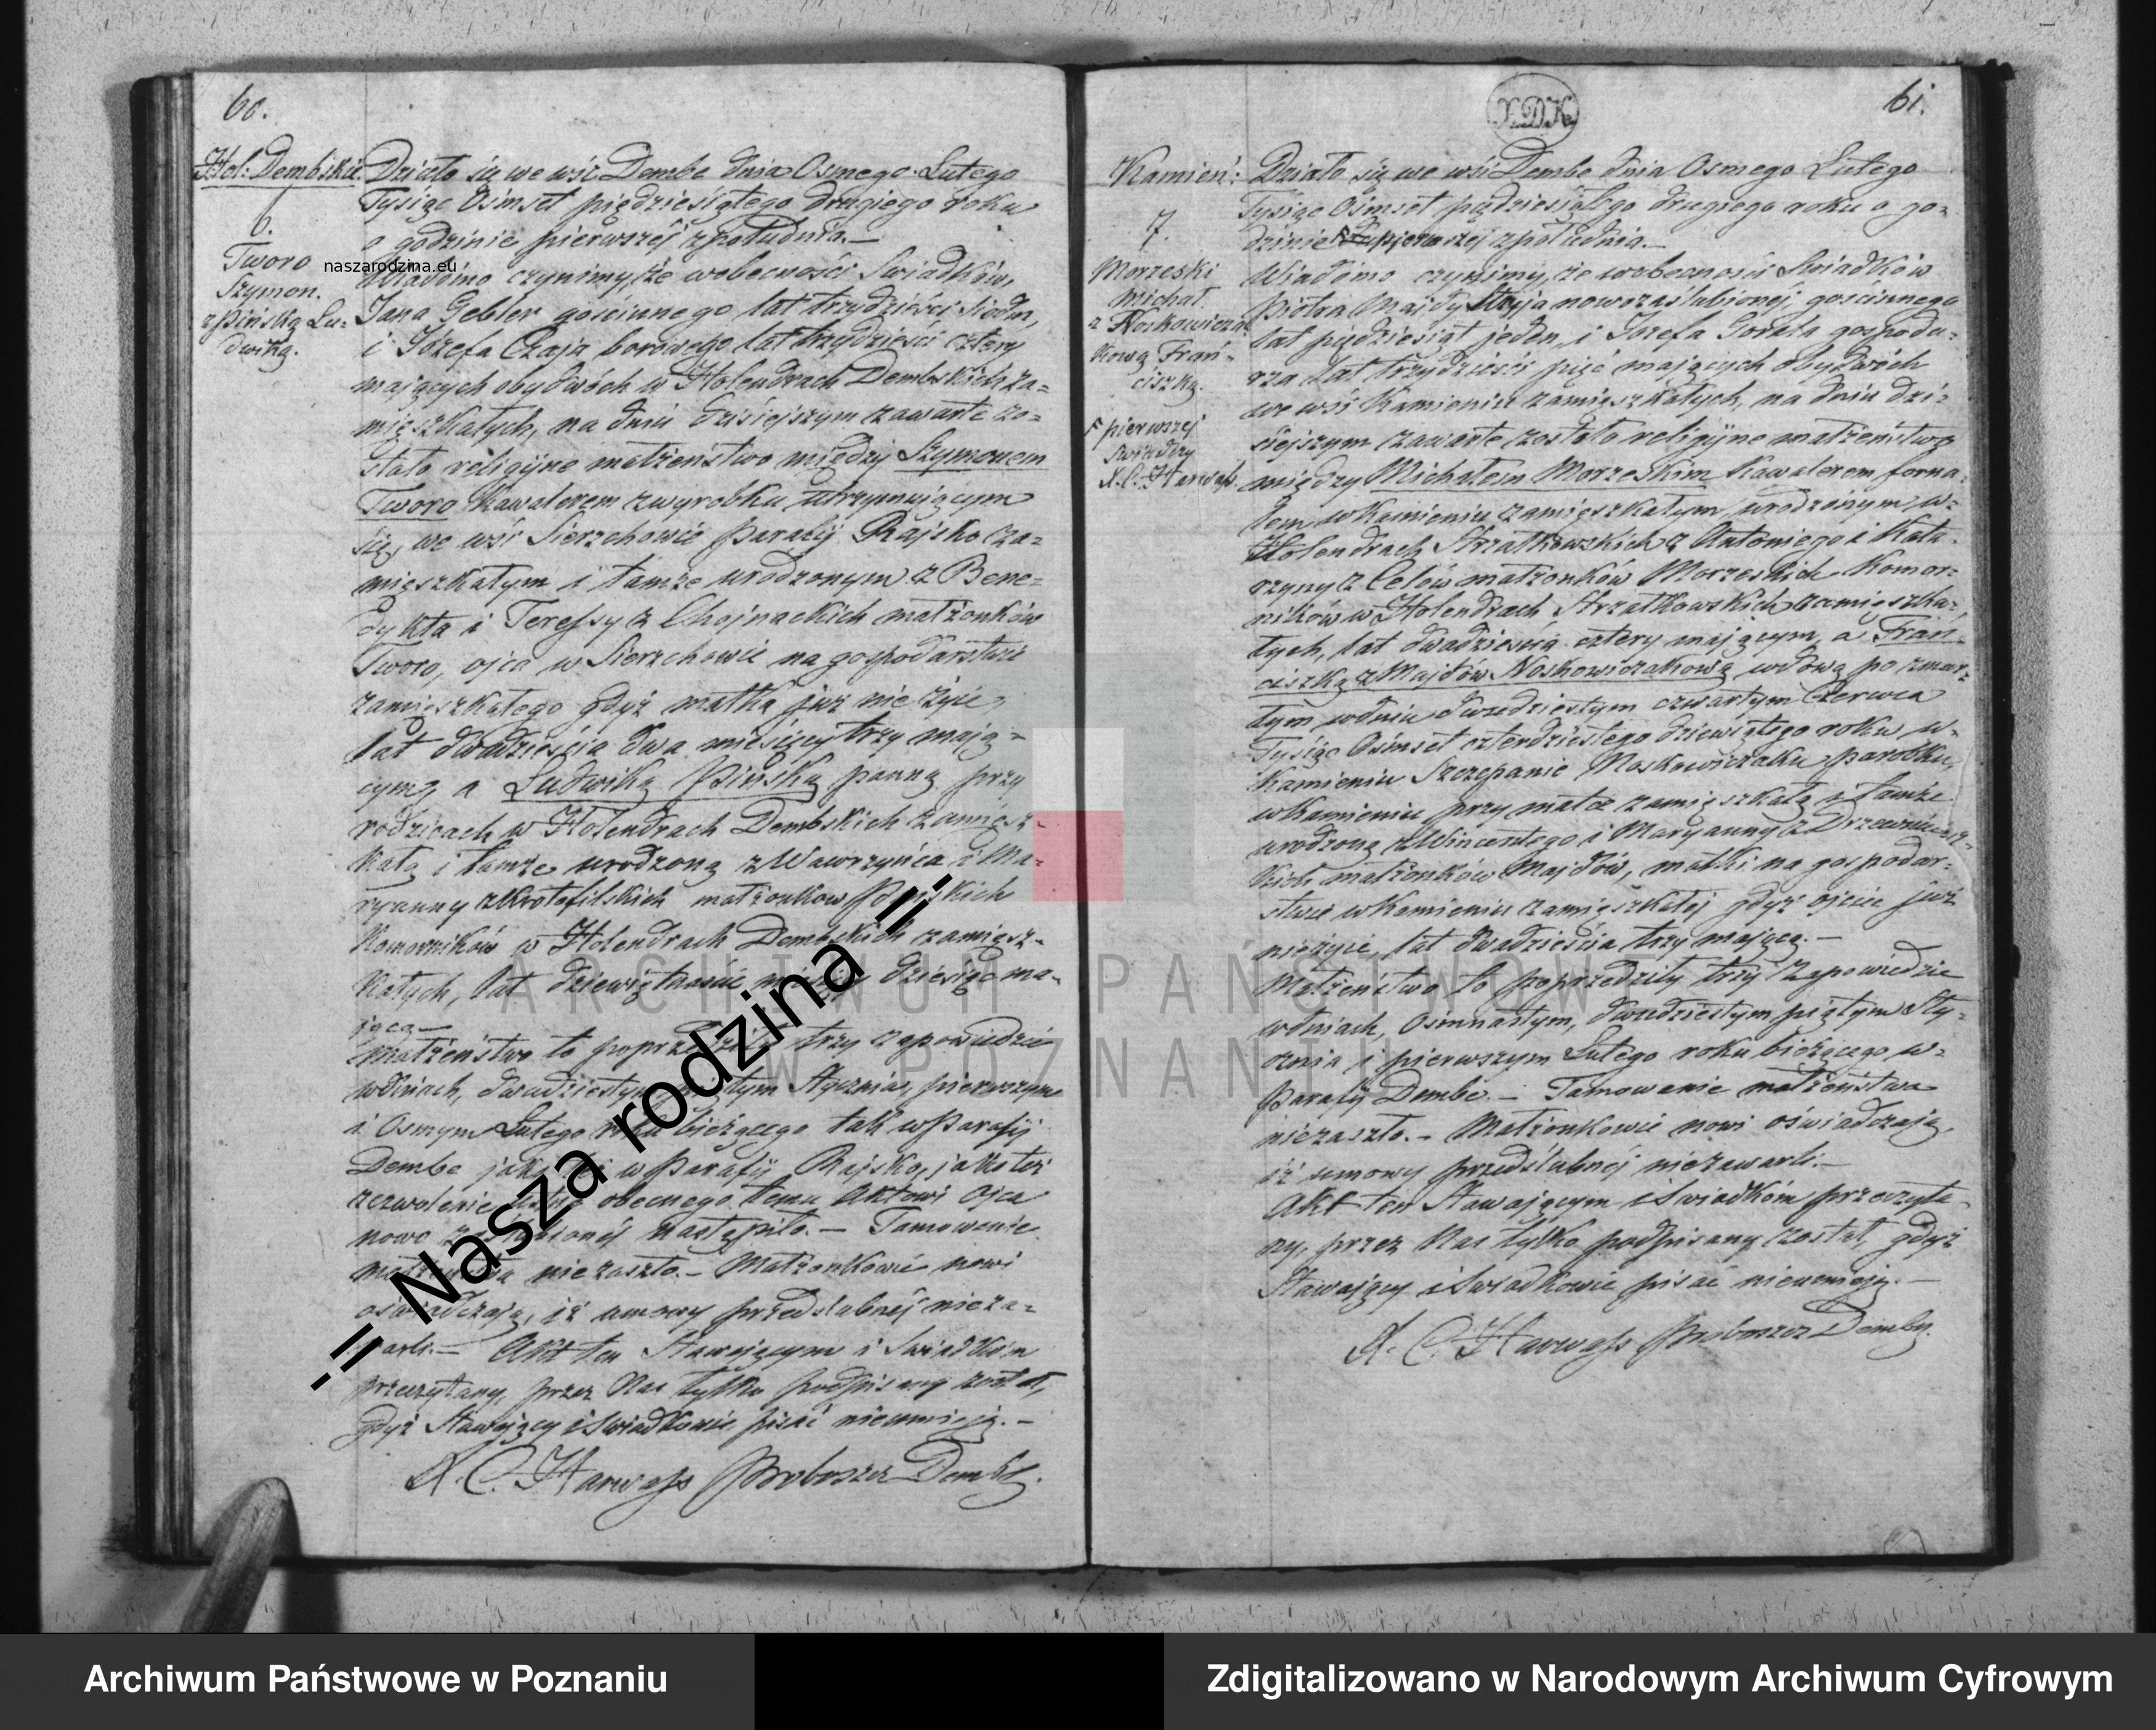 60.
Hol: Dembskie
6.
Tworo
Szymon.
z Pińską Lu-
dwiką.
naszarodzina.eu
Działo się we wsi Dembe dnia Osmego Lutego
Tysiąc Ośmset pięćdziesiątego drugiego roku
o godzinie pierwszéj z południa.—
Wiadomo czynimy, że w obecności Swiadków,
Jana Gebler gościnnego lat trzydzieści siedm,
i Józefa Czaja borowego lat trzydzieści cztery
mających obydwóch w Holendrach Dembskich za-
mięszkałych, na dniu dzisiejszym zawarte zo-
stało religijne małżeństwo między Szymonem
Tworo Kawalerem z wyrobku utrzymującym
się, we wsi Sierzchowie Parafij Rajsko za-
mięszkałym i tamże urodzonym z Bene-
dykta i Teressy z Chojnackich małżonków
Tworo, ojca w Sierzchowie na gospodarstwie
zamięszkałego gdyż matka już nie żyie,
lat dwadzieścia dwa miesięcy trzy mają-
cym, a Ludwiką Pińską panną przy
rodzicach w Holendrach Dembskich zamięsz-
kałą i tamże urodzoną z Wawrzyńca i Ma-
ryanny z Krotofilskich małżonkow Pińskich
Komorników w Holendrach Dembskich zamięsz-
kałych, lat dziewiętnaście miesięcy dziesięć ma-
jącą.—
Małżeństwo to poprzedziły trzy zapowiedzie
w dniach, dwudziestym piątym Stycznia, pierwszym
i Osmym Lutego roku bieżącego tak w Parafij
Dembe jako i w Parafij Rajsko, jako też
zezwolenie ustne obecnego temu Aktowi Ojca
nowo zaślubionéj nastąpiło.— Tamowanie
małżeństwa nie zaszło.— Małżonkowie nowi
oświadczają, iż umowy przedślubnéj nieza-
warli.— Akt ten Stawającym i Swiadkóm
przeczytany, przez Nas tylko podpisany został,
gdyż Stawający i Swiadkowie pisać nieumieją.—
X. C. Harwass Proboszcz Demby.
-= Nasza rodzina =-
X.D.K.
61.
Kamień:
7.
Morzeski
Michał.
z Noskowicza-
kową Fran-
ciszką.
pierwszej
Swiadczy
X. C. Harwass.
Działo się we wsi Dembe dnia Osmego Lutego
Tysiąc Ośmset pięćdziesiątego drugiego roku o go-
dzinie pierwszej z południa.—
Wiadomo czynimy, że w obecności Swiadków
Piotra Majdy Stryja nowozaślubionéj, gościnnego
lat pięćdziesiąt jeden, i Jozefa Gorala gospoda-
rza lat trzydzieści pięć mających obydwóch
we wsi Kamieniu zamięszkałych, na dniu dzi-
siejszym zawarte zostało religijne małżeństwo
między Michałem Morzeskim Kawalerem forna-
lem w Kamieniu zamięszkałym, urodzonym w-
Holendrach Strzałkowskich z Antoniego i Kata-
rzyny z Celów małżonków Morzeskich Komor-
ników w Holendrach Strzałkowskich zamięszka-
łych, lat dwadzieścia cztery mającym, a Fran-
ciszką z Majdów Noskowiczakową wdową po zmar-
łym w dniu dwudziestym czwartym Czerwca
Tysiąc Ośmset czterdziestego dziewiątego roku w-
Kamieniu Szczepanie Noskowiczaku parobku,
w Kamieniu przy matce zamięszkałą i tamże
urodzoną z Wincentego i Maryanny z
małżonków Majdów, matki na gospodar-
stwie w Kamieniu zamięszkałej gdyż ojciec już
nieżyie, lat dwadzieścia trzy mającą.—
Małżeństwo to poprzedziły trzy Zapowiedzie
w dniach, Ośmnastym, dwudziestym piątym Sty-
cznia i pierwszym Lutego roku bieżącego w-
Parafij Dembe.— Tamowanie małżeństwa
niezaszło.— Małżonkowie nowi oświadczają,
iż umowy przedślubnéj niezawarli.—
Akt ten Stawającym i Swiadkóm przeczyta-
ny, przez Nas tylko podpisany został, gdyż
Stawający i Swiadkowie pisać nieumieją.—
X. C. Harwass Proboszcz Demby.
ARCHIWUM PAŃSTWOWE
W POZNANIU
Archiwum Państwowe w Poznaniu
Zdigitalizowano w Narodowym Archiwum Cyfrowym